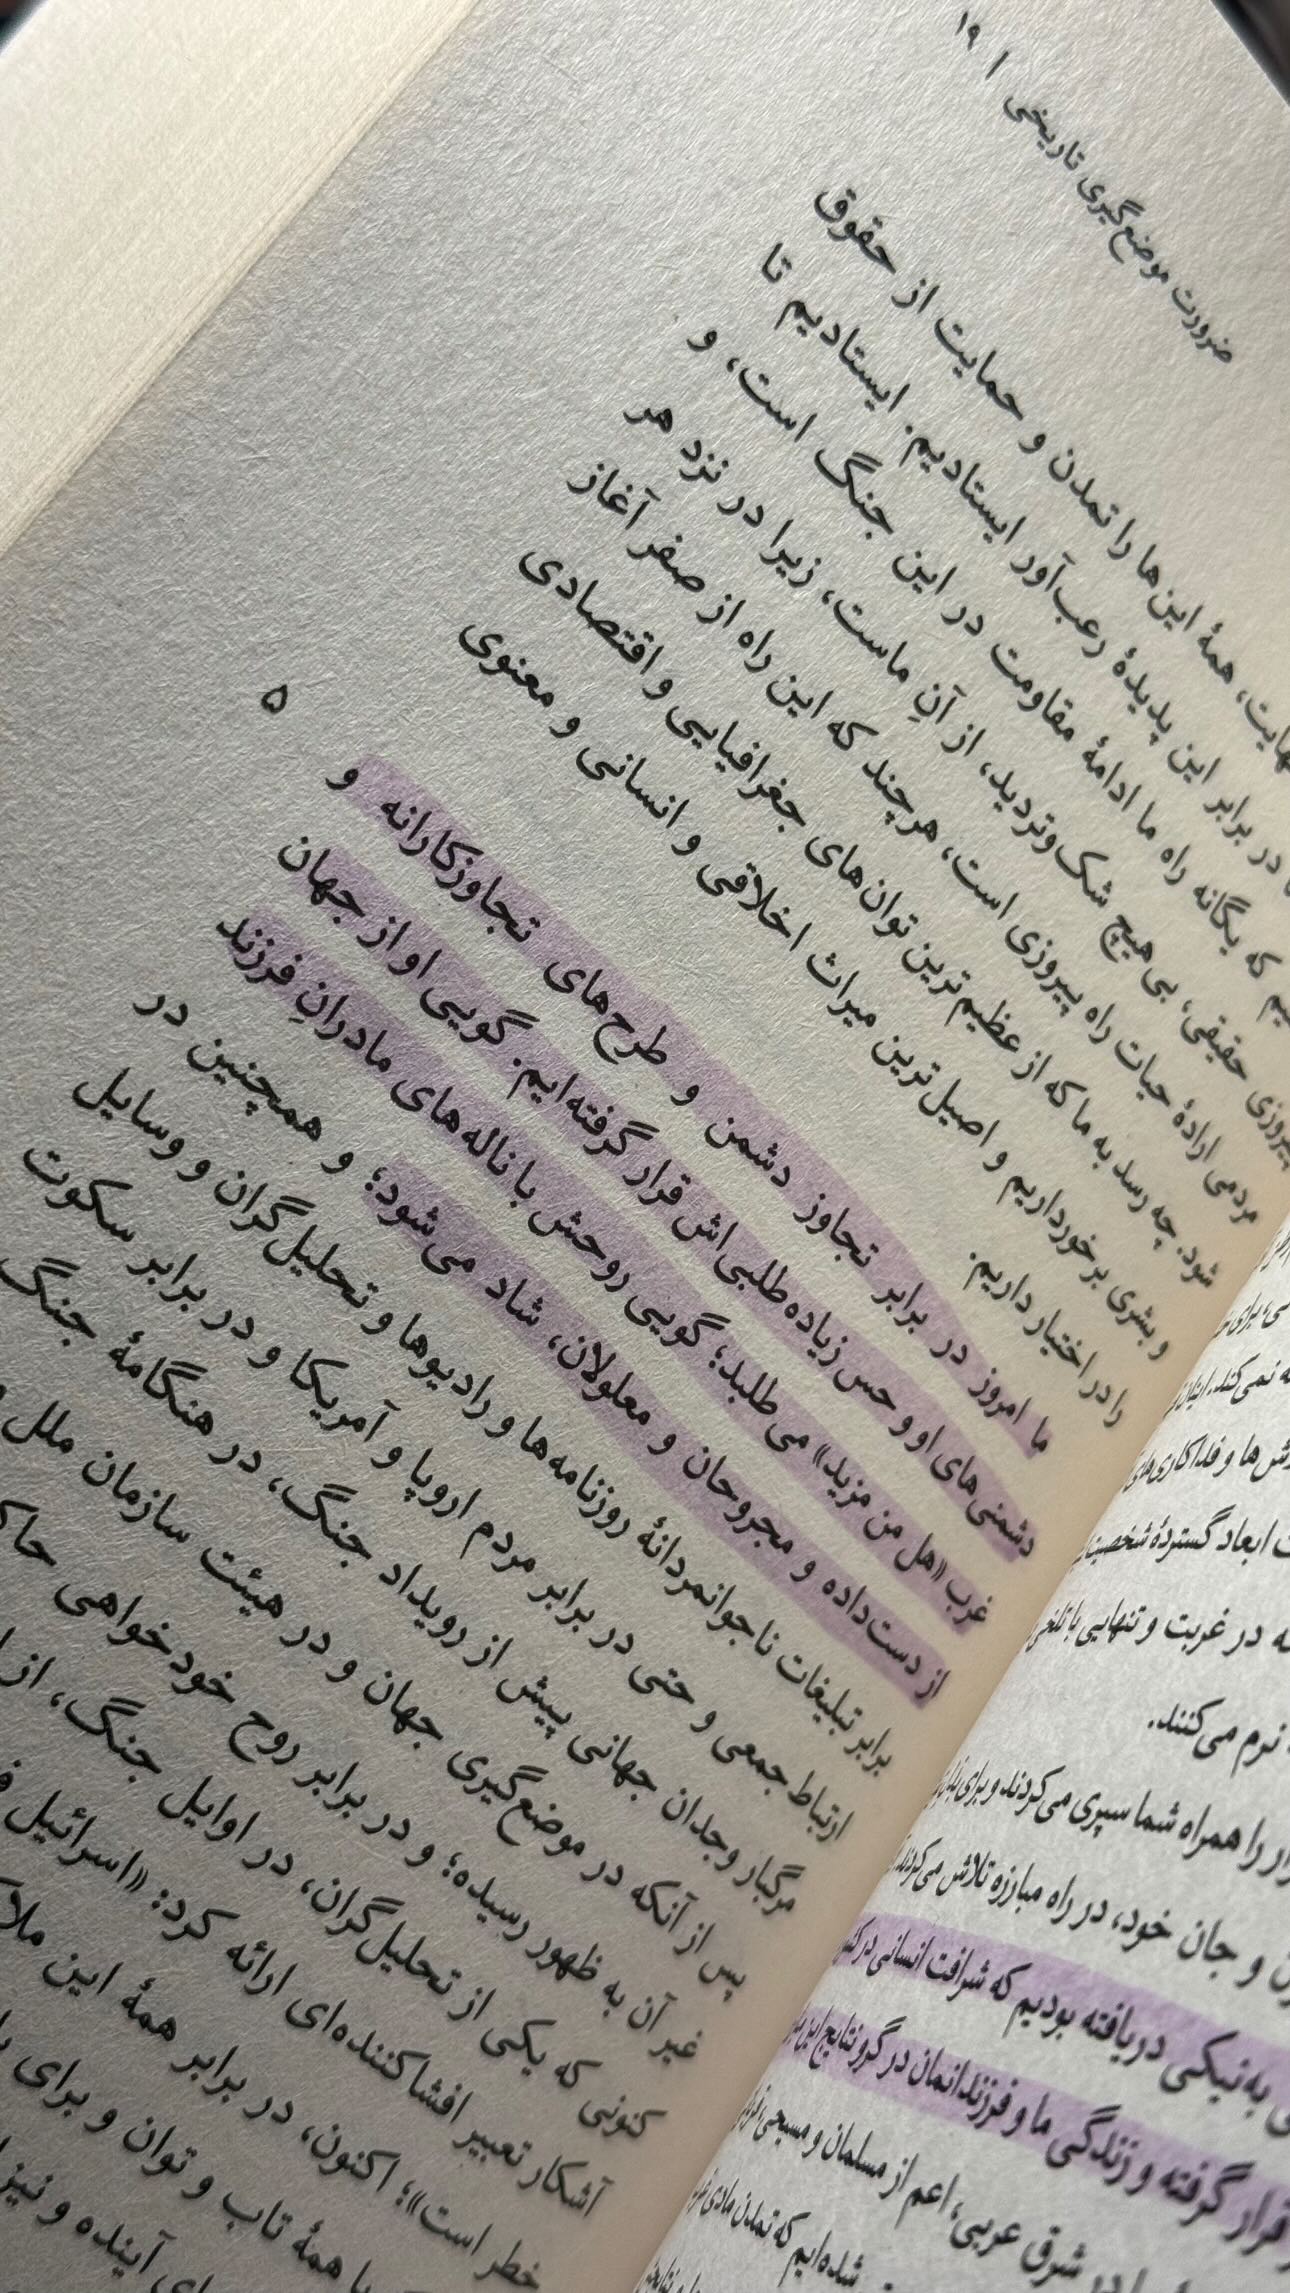 ضرورت موضع‌گیری تاریخی / ۱۹
همهٔ این‌ها را تمدن و حمایت از حقوق
در برابر این پدیدهٔ رعب‌آور ایستادیم. ایستادیم تا
که یگانه راه ما ادامهٔ مقاومت در این جنگ است، و
پیروزی حقیقی، بی‌هیچ شک‌وتردید، از آنِ ماست، زیرا در نزد هر
مردمی ارادهٔ حیات راه پیروزی است، هرچند که این راه از صفر آغاز
شود. چه رسد به ما که از عظیم‌ترین توان‌های جغرافیایی و اقتصادی
و بشری برخورداریم و اصیل‌ترین میراث اخلاقی و انسانی و معنوی
را در اختیار داریم.
۵
ما امروز در برابر تجاوز دشمن و طرح‌های تجاوزکارانه و
دشمنی‌های او و حس زیاده‌طلبی‌اش قرار گرفته‌ایم. گویی او از جهان
غرب «هل من مزید» می‌طلبد؛ گویی روحش با ناله‌های مادرانِ فرزند
از دست‌داده و مجروحان و معلولان، شاد می‌شود؛ و همچنین در
برابر تبلیغات ناجوانمردانهٔ روزنامه‌ها و رادیوها و تحلیل‌گران و وسایل
ارتباط جمعی و حتی در برابر مردم اروپا و آمریکا و در برابر سکوت
مرگبار وجدان جهانی پیش از رویداد جنگ، در هنگامهٔ جنگ
پس از آنکه در موضع‌گیری جهان و در هیئت سازمان ملل
غیر آن به ظهور رسیده؛ و در برابر روح خودخواهی
کنونی که یکی از تحلیل‌گران، در اوایل جنگ، از
آشکار تعبیر افشاکننده‌ای ارائه کرد: «اسرائیل
خطر است»؛ اکنون، در برابر همهٔ این
با همهٔ تاب و توان و برای
آینده و نیز
نمی‌کند.
و فداکاری‌های
ابعاد گستردهٔ
در غربت و تنهایی با
نرم می‌کنند.
را همراه شما سپری می‌کردند و برای
و جان خود، در راه مبارزه تلاش می‌کردند
به‌نیکی دریافته بودیم که شرافت انسانی در
قرار گرفته و زندگی ما و فرزندانمان در گرو نتایج این
در شرق عربی، اعم از مسلمان و مسیحی،
شده‌ایم که تمدن مادی